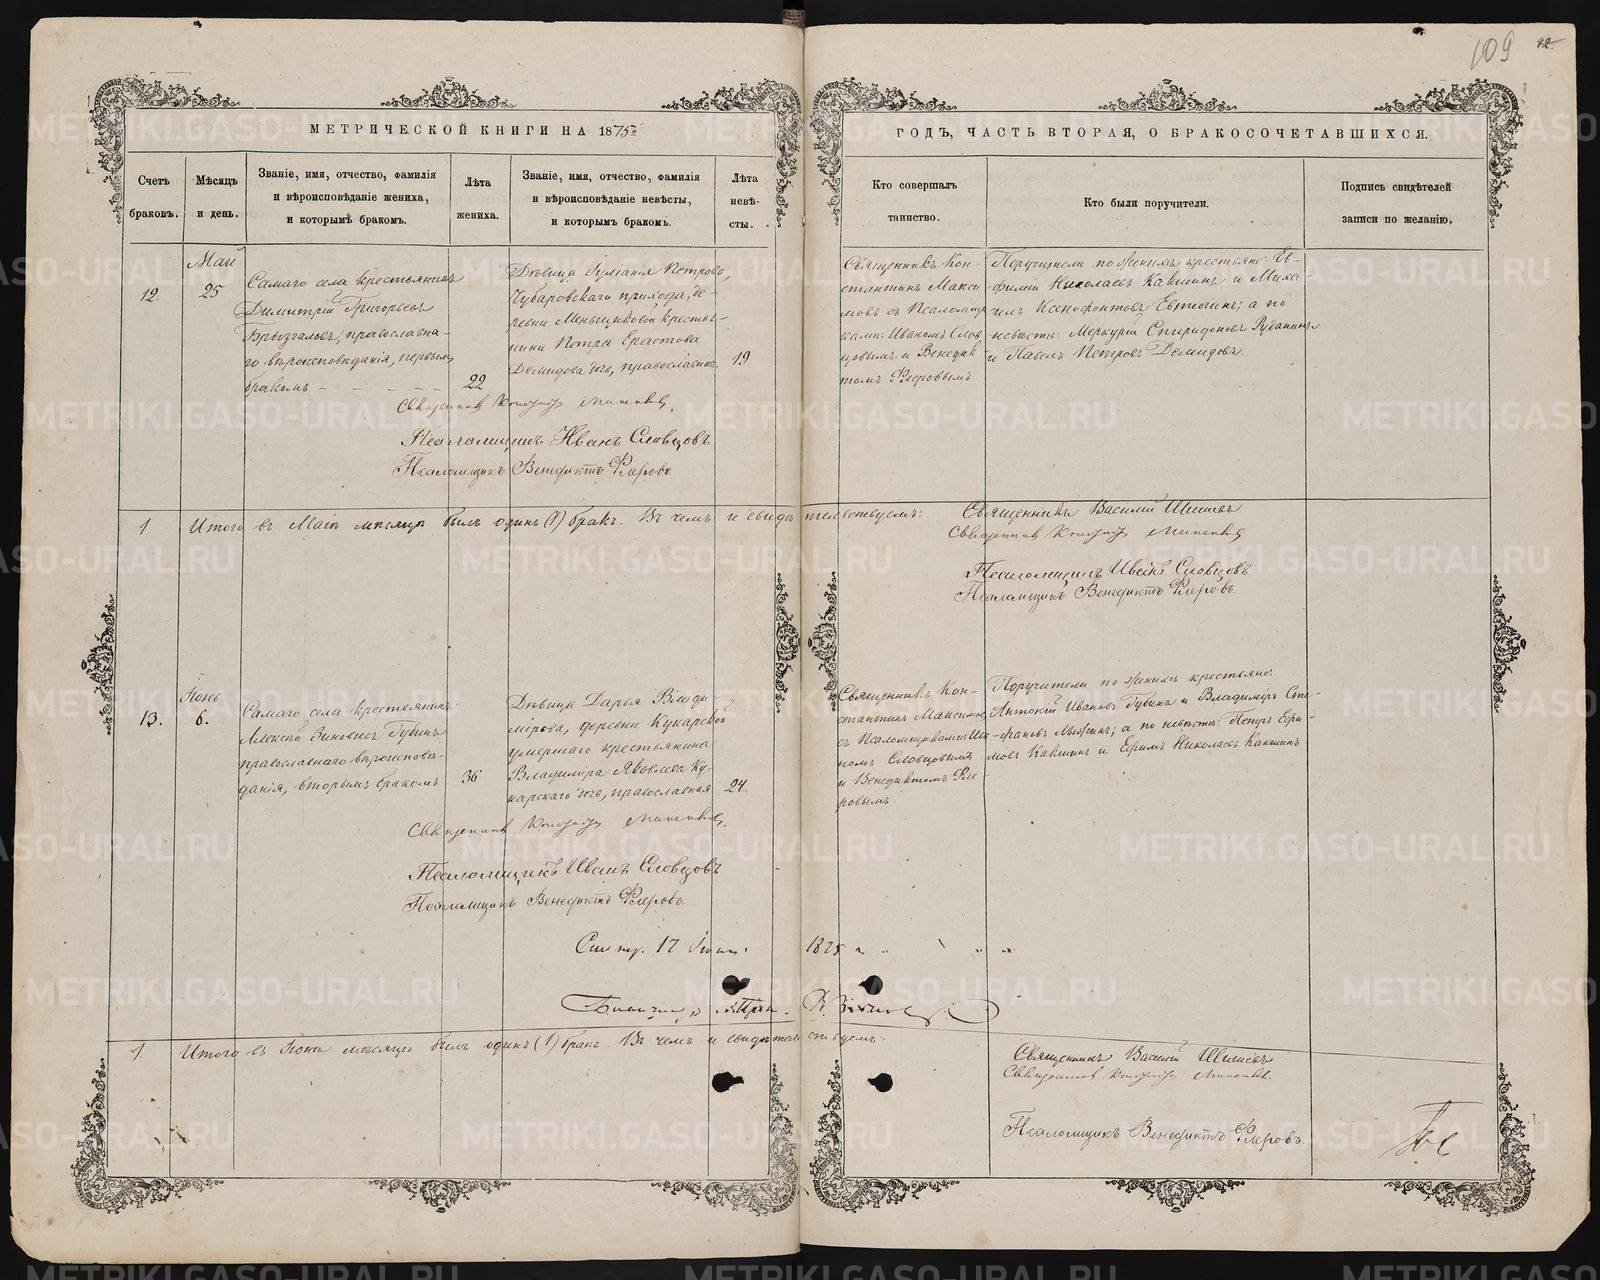 109
МЕТРИЧЕСКОЙ КНИГИ НА 1875
ГОДЪ, ЧАСТЬ ВТОРАЯ, О БРАКОСОЧЕТАВШИХСЯ.
Счетъ
браковъ.
Мѣсяцъ
и день.
Званіе, имя, отчество, фамилія
и вѣроисповѣданіе жениха,
и которымъ бракомъ.
Лѣта
жениха.
Званіе, имя, отчество, фамилія
и вѣроисповѣданіе невѣсты,
и которымъ бракомъ.
Лѣта
невѣ-
сты.
Кто совершалъ
таинство.
Кто были поручители.
Подпись свидѣтелей
записи по желанію.
12.
Май
25
Самаго села крестьянинъ
Димитрій Григорьевъ
Брызгаловъ, православна-
го вѣроисповѣданія, первымъ
бракомъ
22
Дѣвица Іуліанія Петрова,
Чубаровскаго прихода, де-
ревни Меньщиковой кресть-
янина Петра Ерастова
Демидова дочь, православная,
19
Священникъ Кон-
стантинъ Макси
мовъ съ Псаломщи
ками: Иваномъ Слов-
цовымъ и Венедик-
томъ Флеровымъ
Поручители по женихѣ крестьяне: Ев-
фимій Николаевъ Какшинъ и Миха-
илъ Ксенофонтовъ Евтюгинъ; а по
невѣстѣ: Меркурій Спиридоновъ
и Павелъ Петровъ Демидовъ.
Псаломщикъ Иванъ Словцовъ
Псаломщикъ Венедиктъ Флеровъ.
1 Итого въ Маѣ мѣсяцѣ былъ одинъ (1) бракъ. Въ чемъ и свидѣтельствуемъ:
Священникъ Василій
Псаломщикъ Иванъ Словцовъ
Псаломщикъ Венедиктъ Флеровъ.
13.
Іюнь
6.
Самаго села крестьянинъ
Алексѣй Зиновьевъ Губинъ
православнаго вѣроисповѣ-
данія, вторымъ бракомъ
36
Дѣвица Дарья Влади-
мірова, деревни Кукарской
умершаго крестьянина
Владиміра Яковлева Ку-
карскаго дочь, православная
24.
Священникъ Кон-
стантинъ Максимовъ
съ Псаломщиками: Ива-
номъ Словцовымъ
и Венедиктомъ Фле
ровымъ.
Поручители по женихѣ крестьяне:
Антоній Ивановъ Губинъ и Владиміръ Сте-
фановъ; а по невѣстѣ: Петръ Ефи-
мовъ Какшинъ и Ефимъ Николаевъ Какшинъ
Псаломщикъ Иванъ Словцовъ
Псаломщикъ Венедиктъ Флеровъ.
17 1875
1 Итого въ Іюнѣ мѣсяцѣ былъ одинъ (1) бракъ. Въ чемъ и свидѣтельствуемъ:
Священникъ Василій
Псаломщикъ Венедиктъ Флеровъ
METRIKI.GASO-URAL.RU